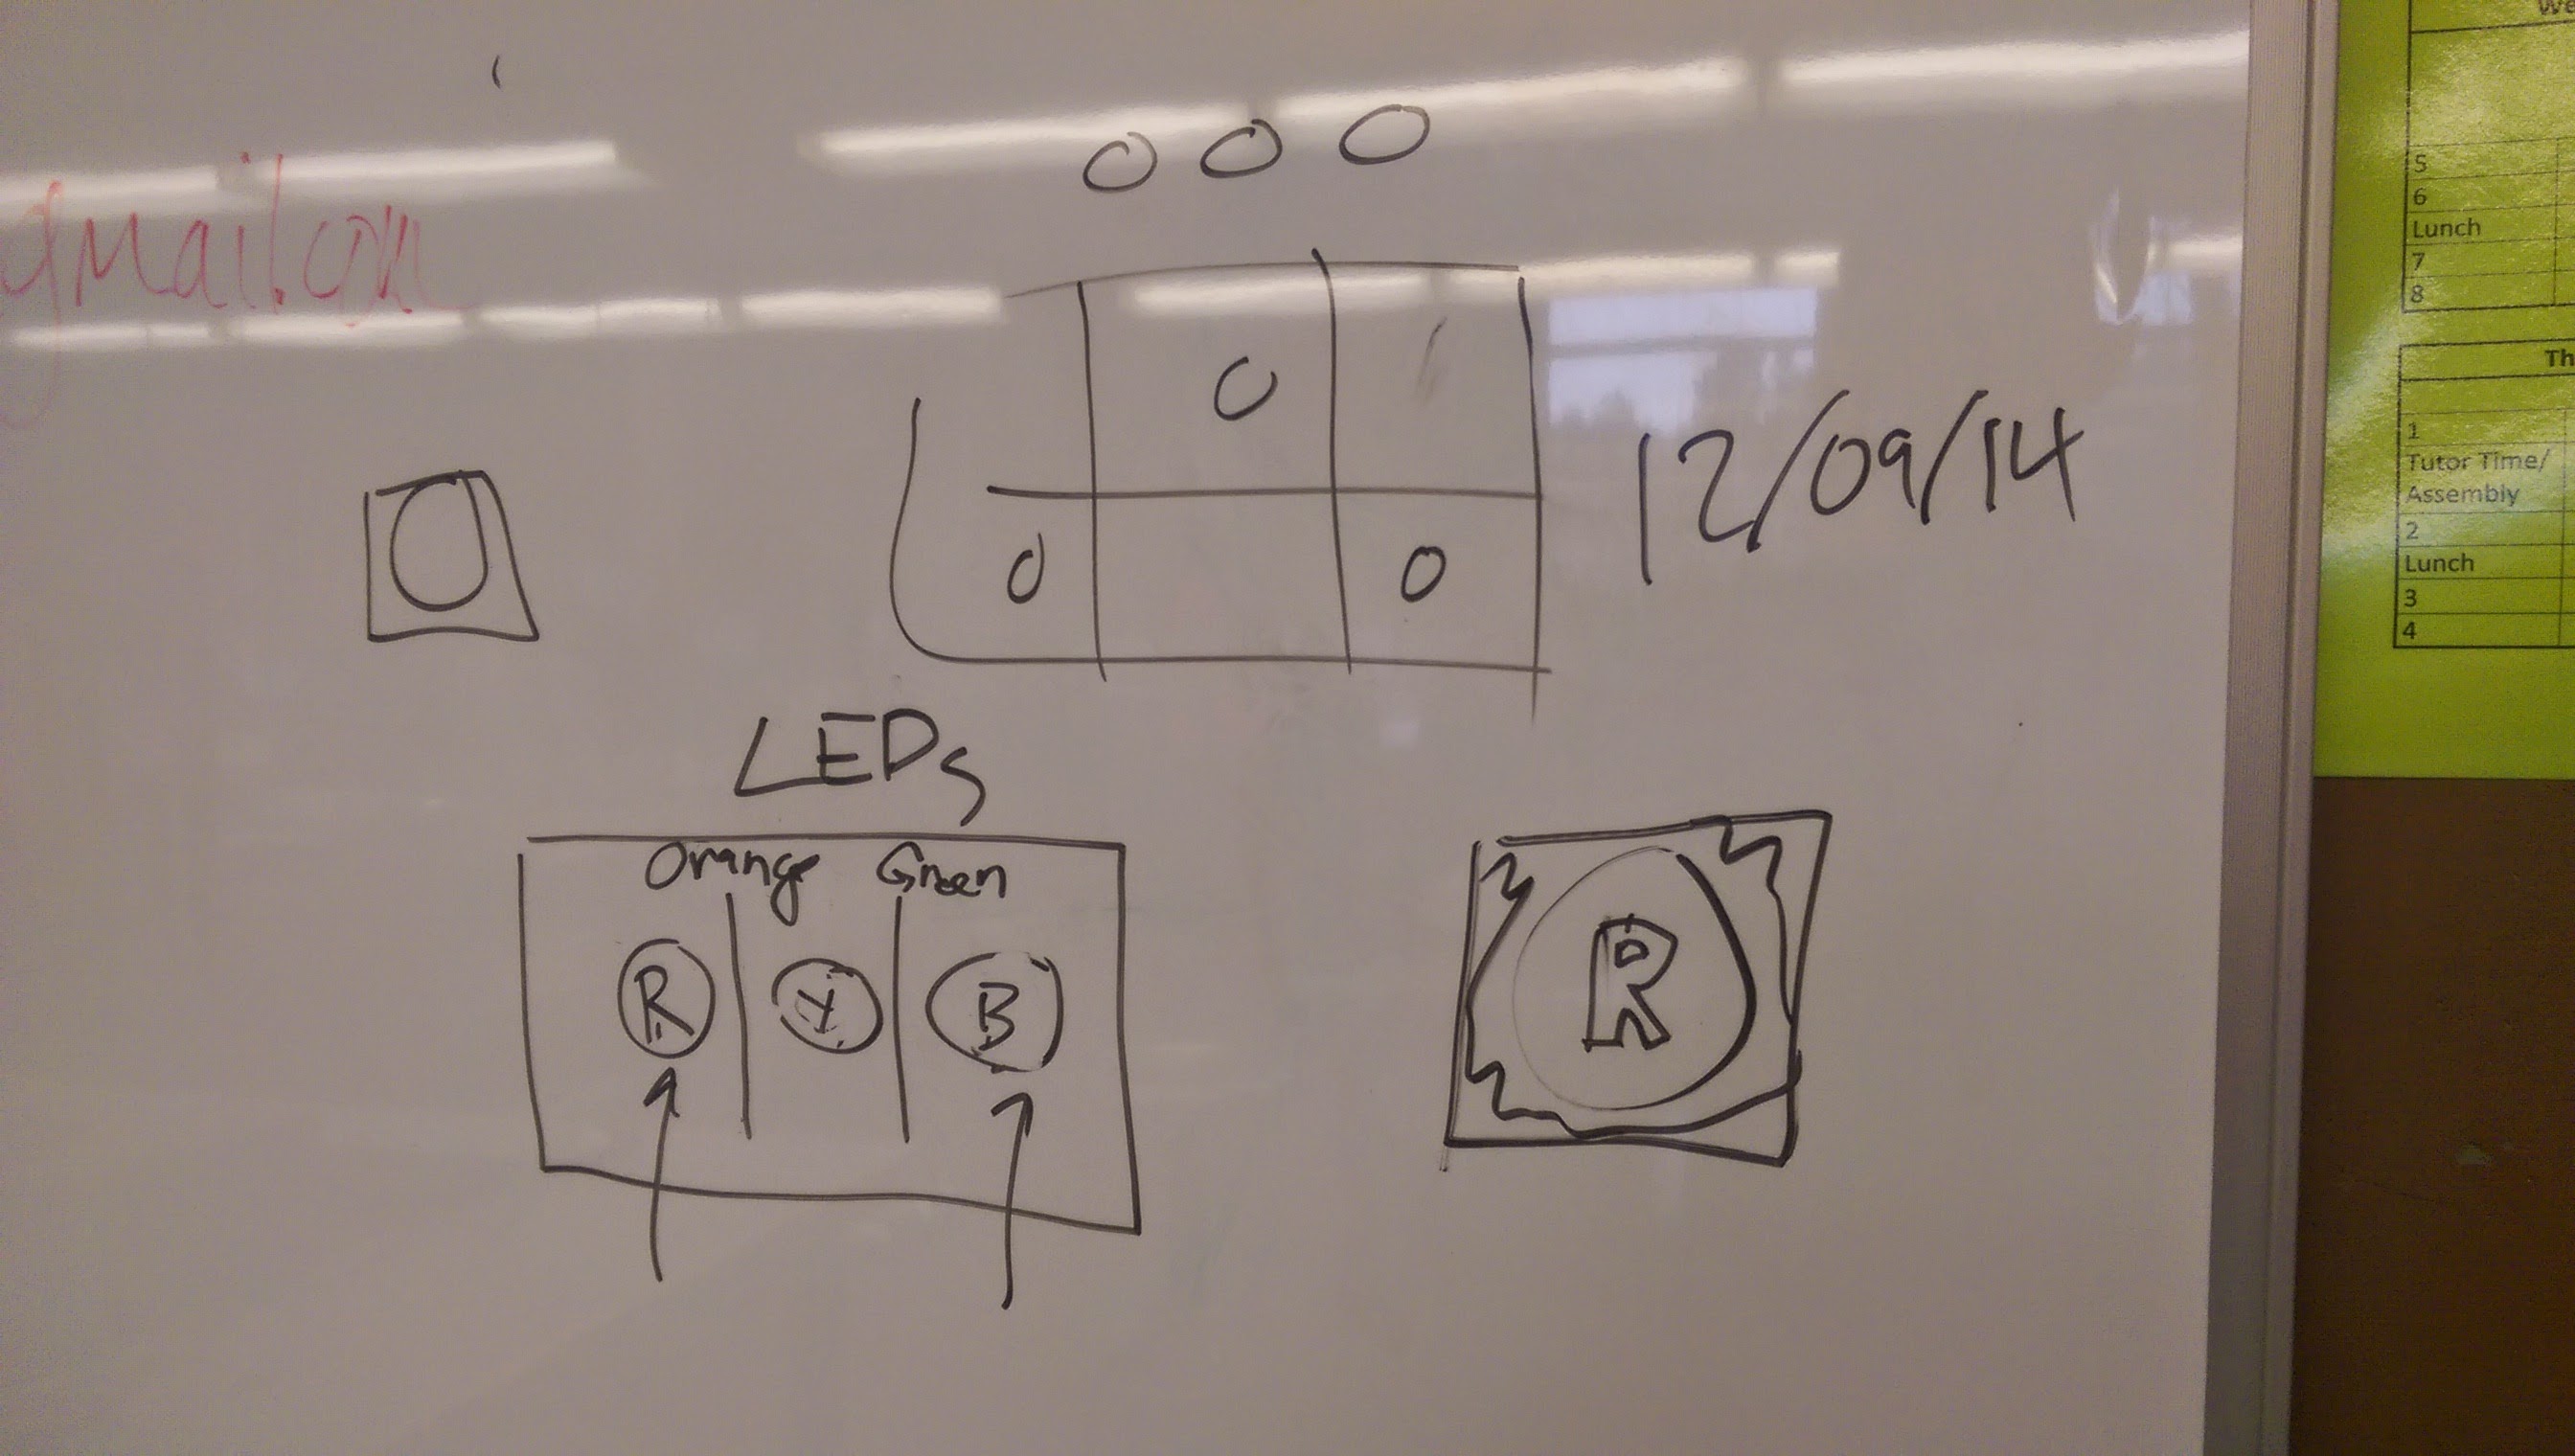 gmail.com
O O O
O
O O
12/09/14
LEDs
Orange Green
R Y B
R
We
5
6
Lunch
7
8
Th
1
Tutor Time/
Assembly
2
Lunch
3
4